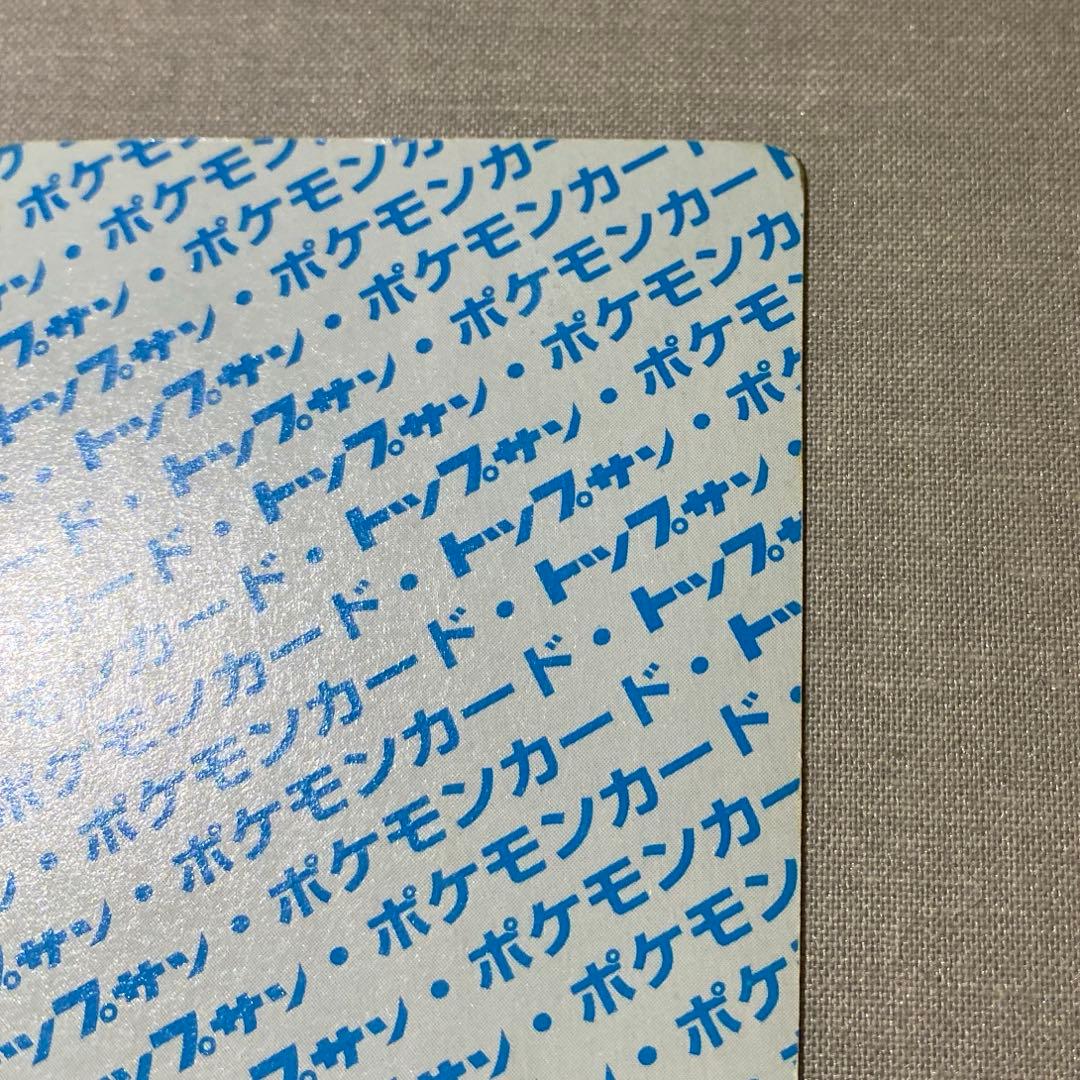 ポケモン
ン・ポケモン
プサン・ポケモンカ
トップサン・ポケモンカー
・トップサン・ポケモンカード
ード・トップサン・ポケモンカード
カード・トップサン・ポケモンカ
ンカード・トップサン・ポケモ
モンカード・トップサン・ポケ
ン・ポケモンカード・トップサン・
プサン・ポケモンカード・トップサ
トップサン・ポケモンカード・トッ
ップサン・ポケモンカード・
プサン・ポケモンカー
サン・ポケモン
・ポケ